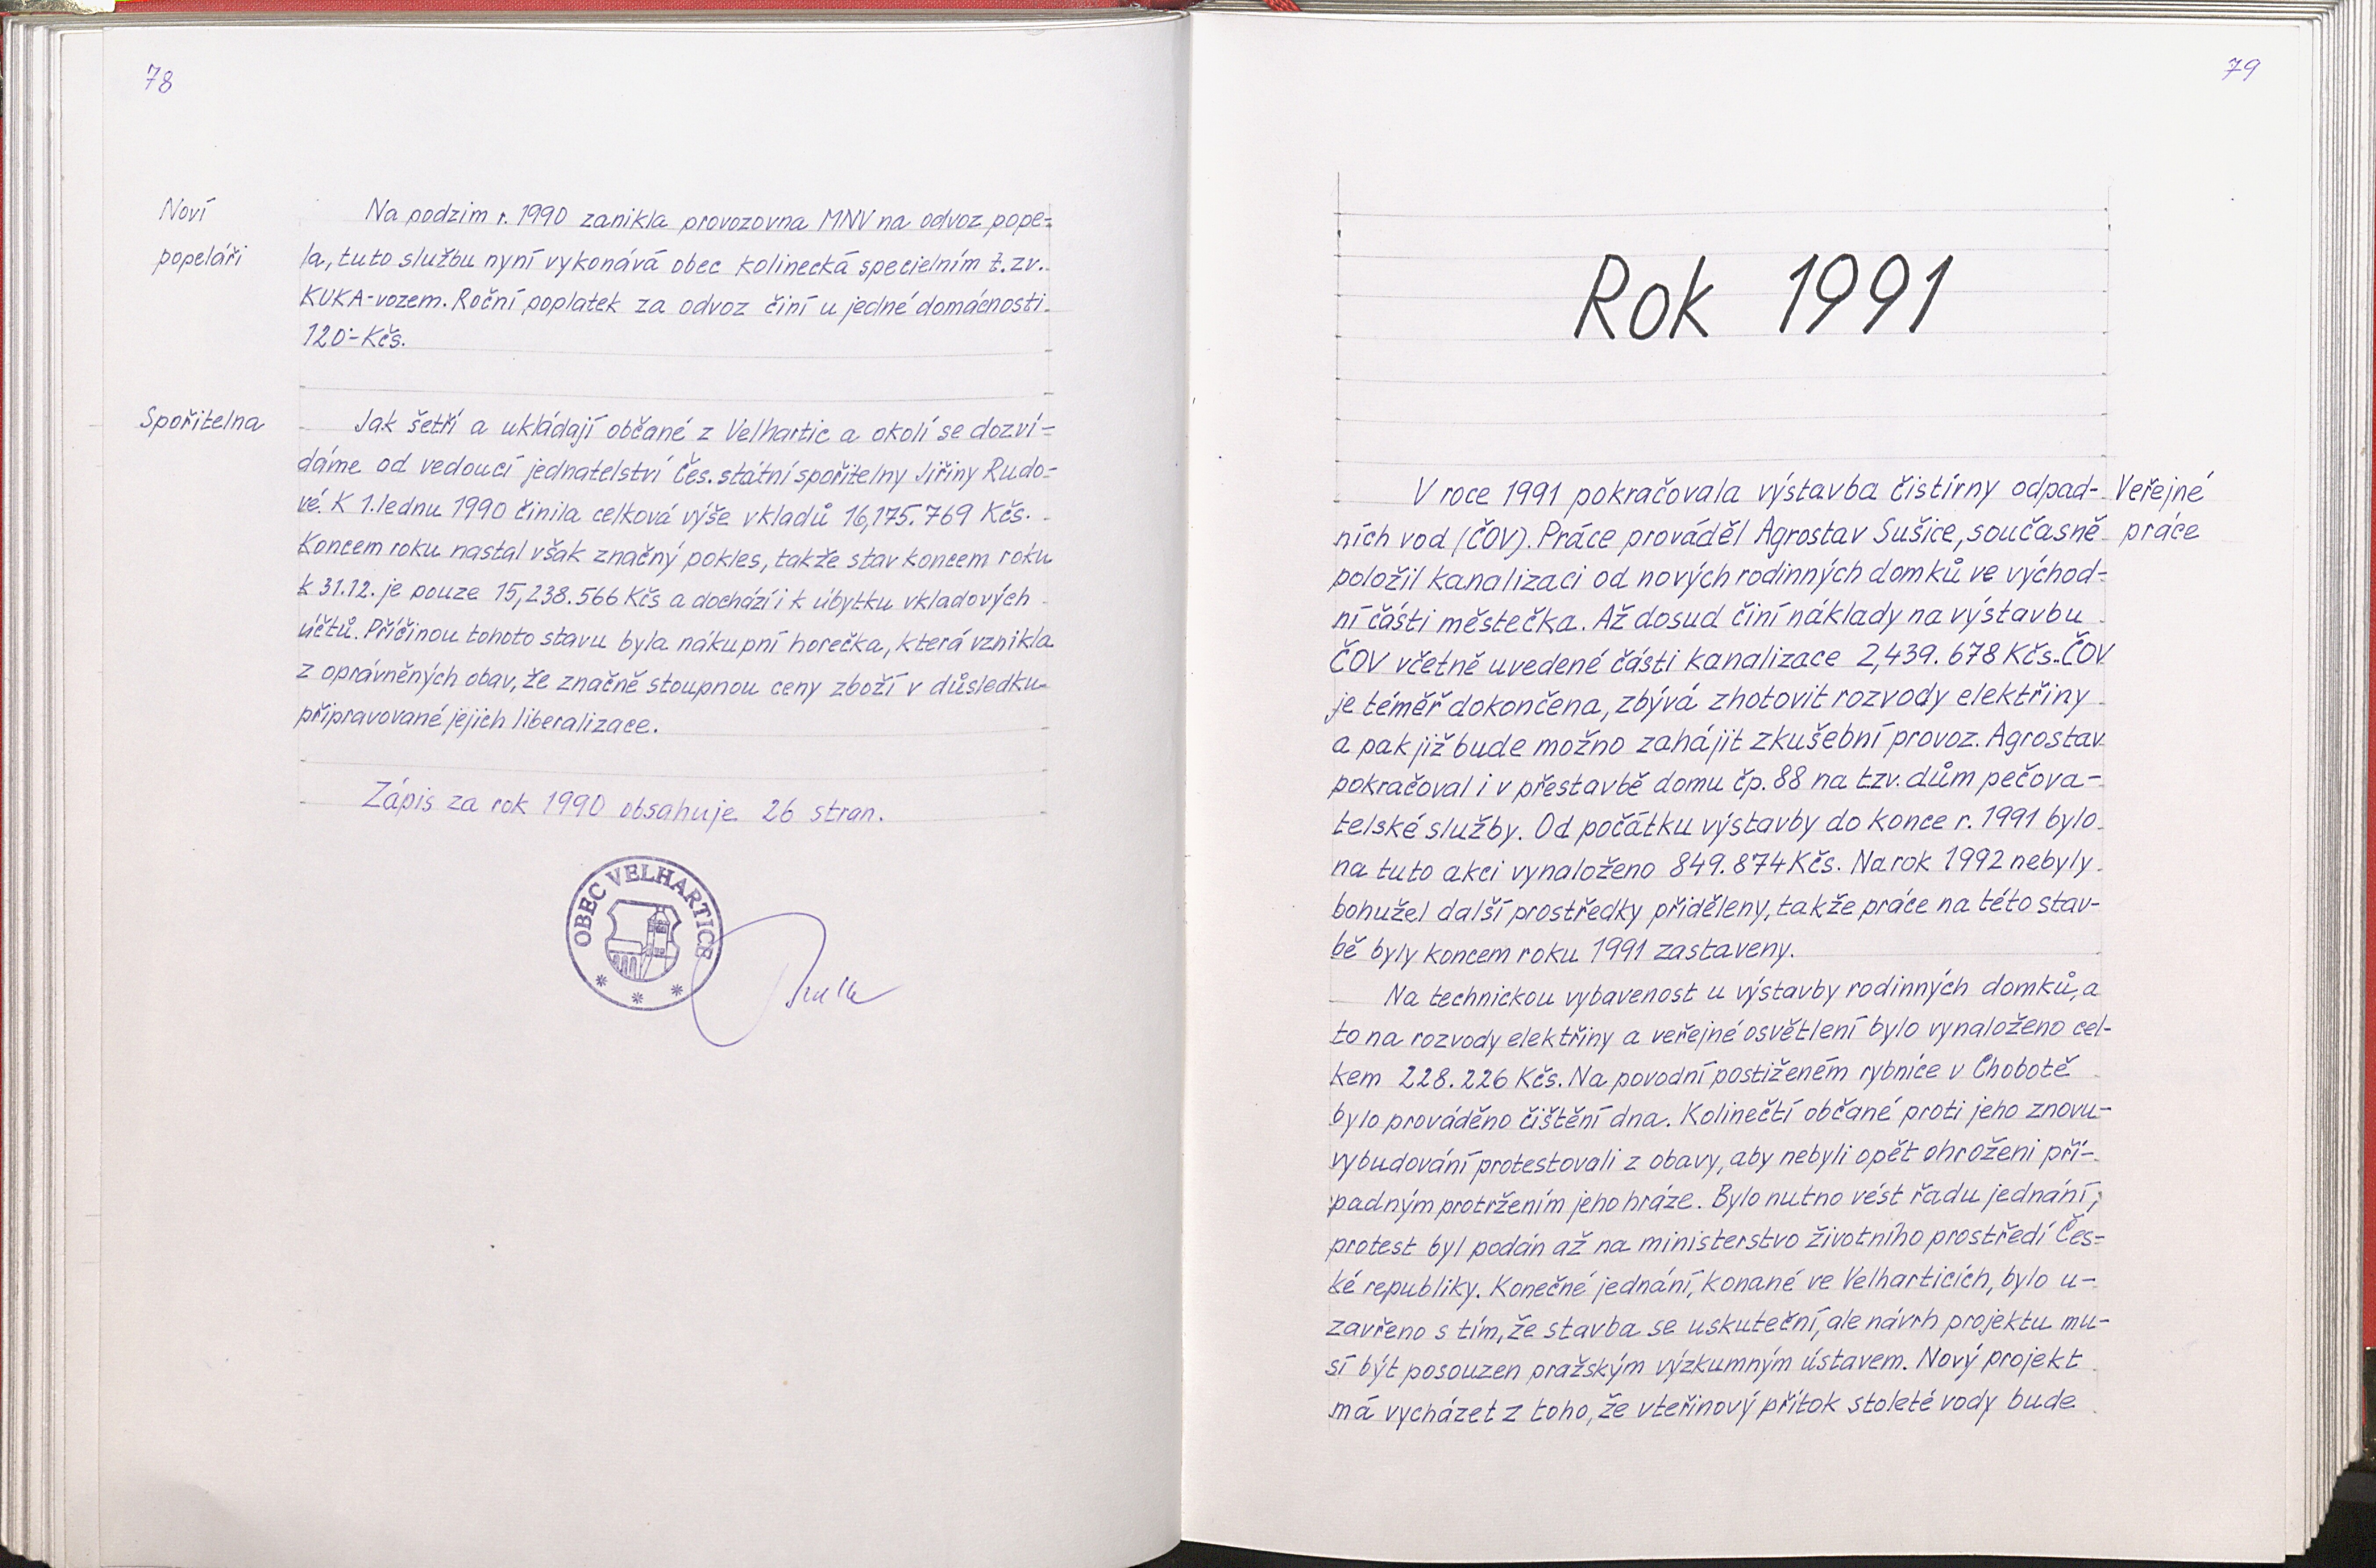 78
Noví
popeláři
Na podzim r. 1990 zanikla provozovna MNV na odvoz pope=
la, tuto službu nyní vykonává obec kolinecká specielním t.zv.
KUKA-vozem. Roční poplatek za odvoz činí u jedné domácnosti
120.-Kčs.
Spořitelna
Jak šetří a ukládají občané z Velhartic a okolí se dozví=
dáme od vedoucí jednatelství Čes. státní spořitelny Jiřiny Rudo=
vé. K 1. lednu 1990 činila celková výše vkladů 16,175.769 Kčs.
Koncem roku nastal však značný pokles, takže stav koncem roku
k 31.12. je pouze 15,238.566 Kčs a dochází i k úbytku vkladových
účtů. Příčinou tohoto stavu byla nákupní horečka, která vznikla
z oprávněných obav, že značně stoupnou ceny zboží v důsledku
připravované jejich liberalizace.
Zápis za rok 1990 obsahuje 26 stran.
OBEC VELHARTICE
79
Rok 1991
Veřejné
práce
V roce 1991 pokračovala výstavba čistírny odpad-
ních vod (ČOV). Práce prováděl Agrostav Sušice, současně
položil kanalizaci od nových rodinných domků ve východ-
ní části městečka. Až dosud činí náklady na výstavbu
ČOV včetně uvedené části kanalizace 2,439.678 Kčs. ČOV
je téměř dokončena, zbývá zhotovit rozvody elektřiny
a pak již bude možno zahájit zkušební provoz. Agrostav
pokračoval i v přestavbě domu čp. 88 na tzv. dům pečova-
telské služby. Od počátku výstavby do konce r. 1991 bylo
na tuto akci vynaloženo 849.874 Kčs. Na rok 1992 nebyly
bohužel další prostředky přiděleny, takže práce na této stav-
bě byly koncem roku 1991 zastaveny.
Na technickou vybavenost u výstavby rodinných domků, a
to na rozvody elektřiny a veřejné osvětlení bylo vynaloženo cel-
kem 228.226 Kčs. Na povodní postiženém rybníce v Chobotě
bylo prováděno čištění dna. Kolinečtí občané proti jeho znovu-
vybudování protestovali z obavy, aby nebyli opět ohroženi pří-
padným protržením jeho hráze. Bylo nutno vést řadu jednání,
protest byl podán až na ministerstvo životního prostředí Čes=
ké republiky. Konečné jednání, konané ve Velharticích, bylo u-
zavřeno s tím, že stavba se uskuteční, ale návrh projektu mu-
sí být posouzen pražským výzkumným ústavem. Nový projekt
má vycházet z toho, že vteřinový přítok stoleté vody bude